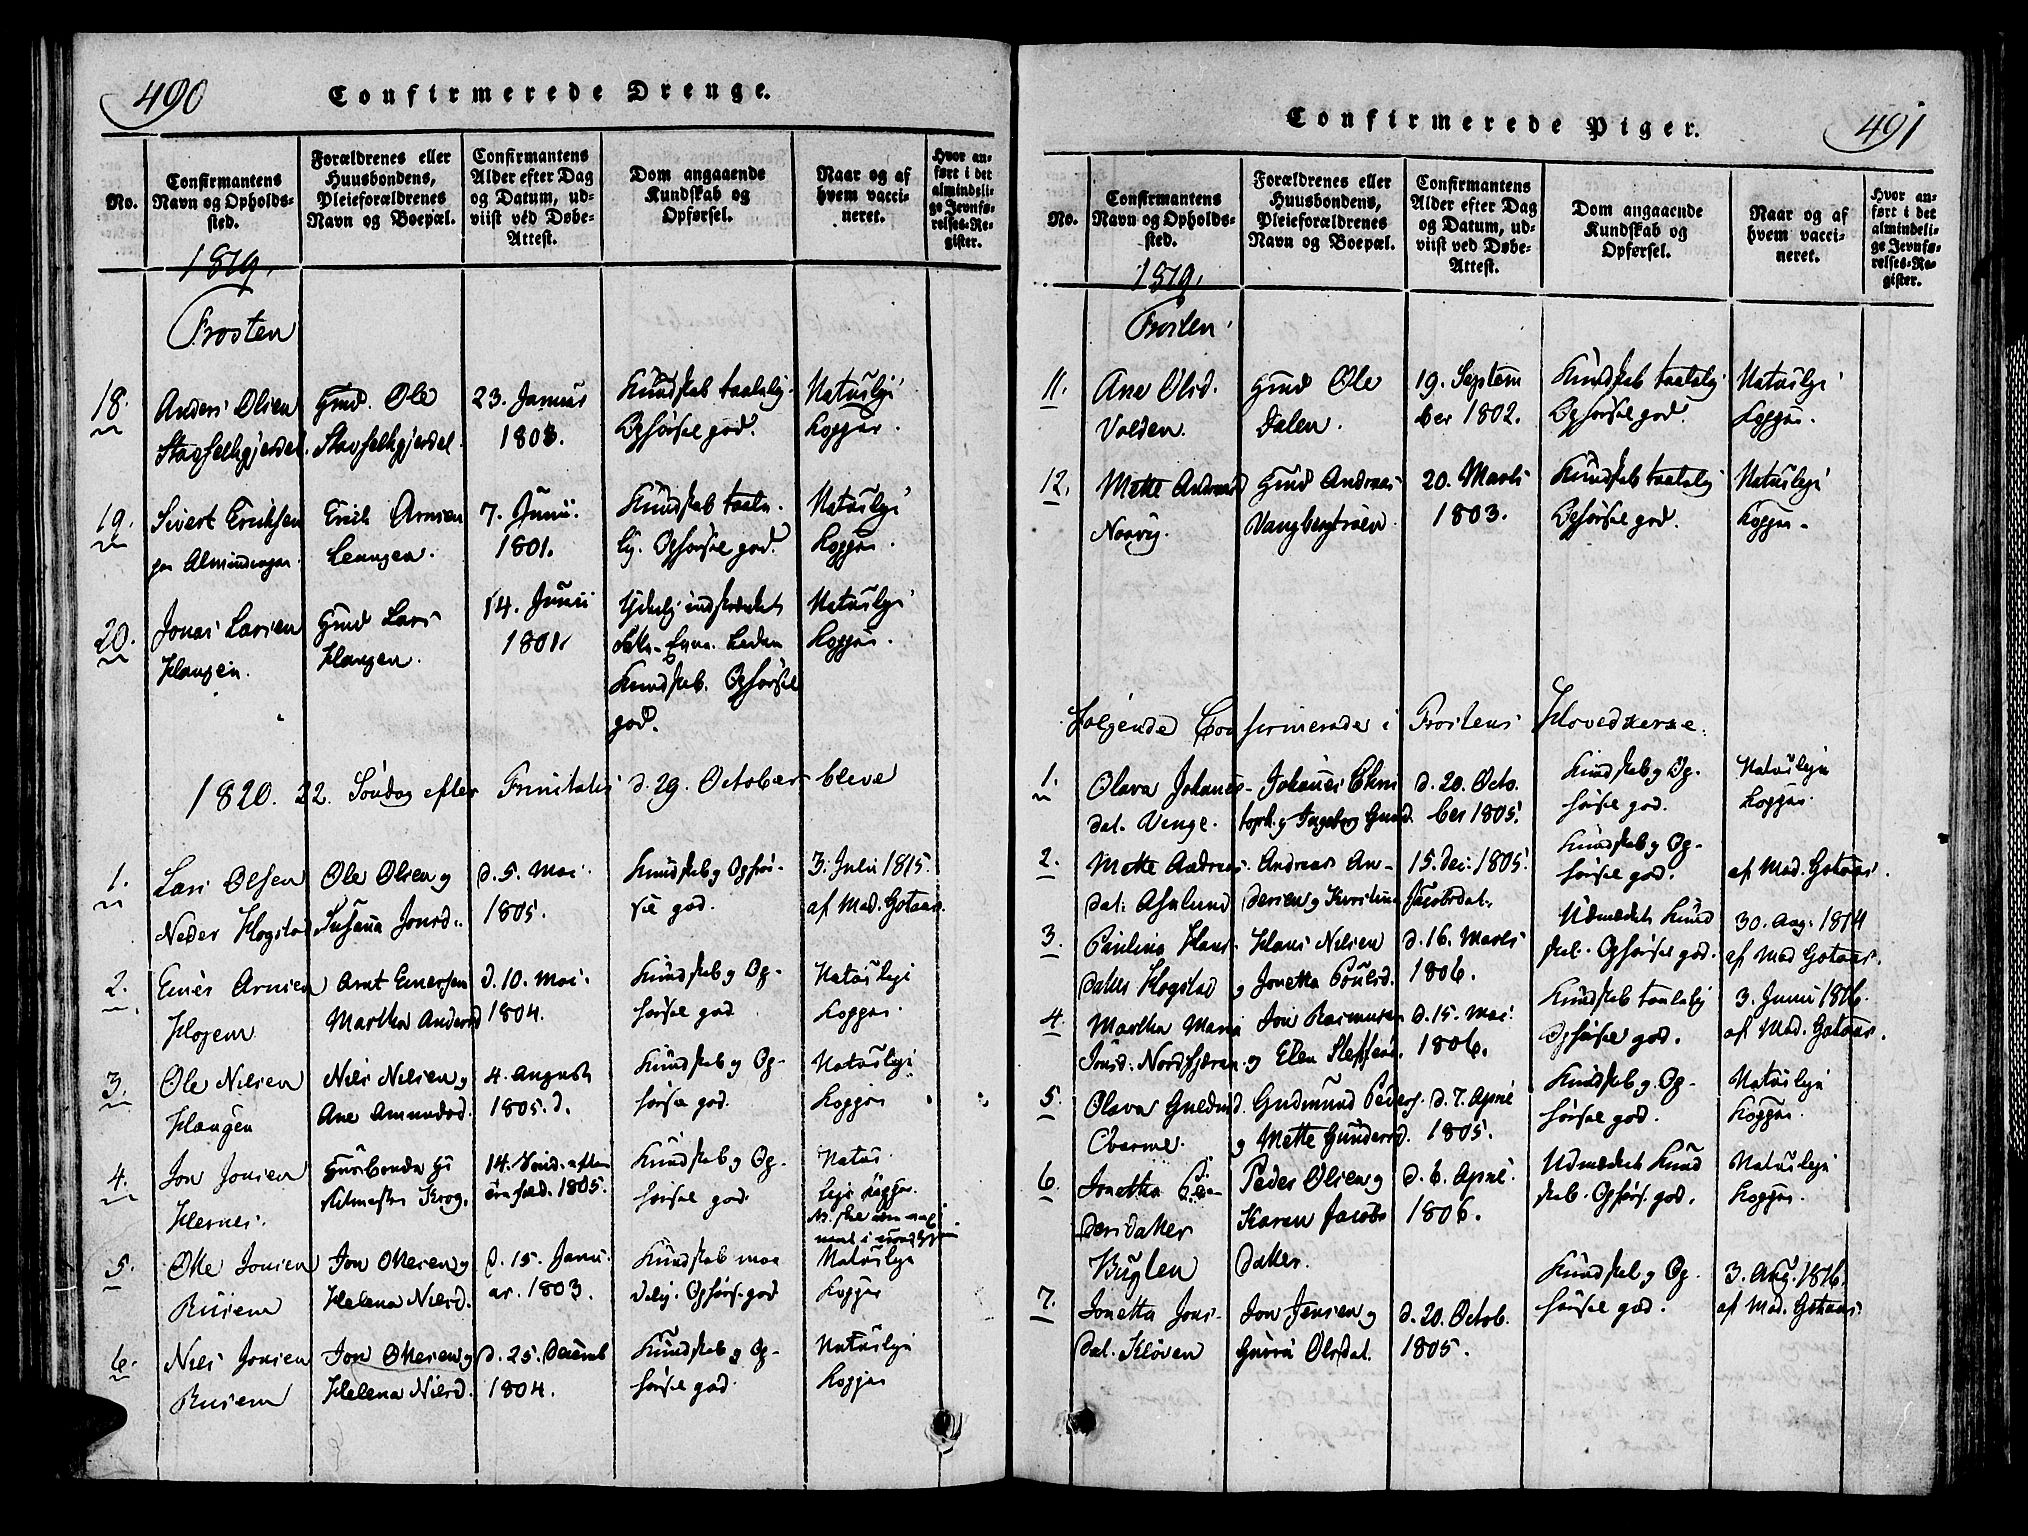 490
Confirmerede Drenge.
No.
Confirmantens
Navn og Opholds-
sted.
Forældrenes eller
Huusbondens,
Pleieforældrenes
Navn og Boepæl.
Confirmantens
Alder efter Dag
og Datum, ud-
viist ved Døbe-
Attest.
Dom angaaende
Kundskab og
Opførsel.
Naar og af
hvem vacci-
neret.
Hvor an-
ført i det
almindeli-
ge Jevnfø-
relses-Re-
gister.
1819.
Frosten
18.
Anders Olsen
Gmd. Ole
23. Januar
1803.
Kundskab taalelig.
Opførsel god.
Naturlige
Kopper.
19.
Sivert Eriksen
paa Almindingen.
Erich Arnsen
Leangen.
7. Junii.
1801.
Kundskab taale-
lig. Opførsel god.
Naturlige
Kopper.
20.
Jonas Larsen
Haugen.
Gmd Lars
Haugen.
14. Junii
1801.
Kundskab. Opførsel
god.
Naturlige
Kopper.
1820. 22. Søndag efter Trinitatis d. 29. October bleve
1.
Lars Olsen
Neder Hogstad
Ole Olsen og
Susana Jonsd.
d. 5. Mai
1805.
Kundskab og Opfør-
sel god.
3. Julii 1815.
af Mad. Gotaas.
2.
Einer Arnsen
Hojem
Arnt Einersen
Martha Andersd
d. 10. Mai.
1804.
Kundskab og Op-
førsel god
Naturlige
Kopper.
3.
Ole Nilsen
Haugen
Nils Nilsen og
Ane Amundsd.
4. August
1805. d.
Kundskab og Op-
førsel god.
Naturlige
Kopper
4.
Jon Jonsen
Hernes.
Huusbonde Hr
Ritmester Krog.
14. Sønd. efter
1805.
Kundskab og Op-
førsel god.
Natur
lige Kopper.
5.
Olle Jonsen
Rusem
Jon Olesen og
Helena Nilsd.
d. 15. Janu-
ar. 1803.
Kundskab maa
delig. Opførs. god
Naturlige
Kopper
6.
Nils Jonsen
Rusem
Jon Olesen og
Helena Nilsd.
d. 25. Decemb
1804.
Kundskab og Op-
førsel god.
Naturlige
Kopper
491
Confirmerede Piger.
No.
Confirmantens
Navn og Opholds-
sted.
Forældrenes eller
Huusbondens,
Pleieforældrenes
Navn og Boepæl.
Confirmantens
Alder efter Dag
og Datum, ud-
viist ved Døbe-
Attest.
Dom angaaende
Kundskab og
Opførsel.
Naar og af
hvem vacci-
neret.
Hvor an-
ført i det
almindeli-
ge Jevnfø-
relses-Re-
gister.
1819.
Frosten
11.
Ane Olsd.
Volden.
Gmd Ole
Dalen.
19. Septem
ber 1802.
Kundskab taalelig
Opførsel god.
Naturlige
Kopper.
12.
Mette Andreasd
Norvig.
Gmd Andreas
20. Marts
1803.
Kundskab taalelig
Opførsel god.
Naturlige
Kopper.
Følgende Confirmerede i Frostens Hovedkirke.
1.
Olava Johanes-
dat. Vinge.
Johanes Chris
toph. og Ingebor Gmd.
d. 20. Octo.
ber 1805.
Kundskab og Op-
førsel god.
Naturlige
Kopper.
2.
Mette Andreas-
dat. Aslund
Andreas An-
dersen og Kirstine Jacobsdat.
15. Dec. 1805.
Kundskab og Op-
førsel god.
af Mad. Gotaas.
3.
Paulina Hans-
datter Hogstad
Hans Nilsen
og Jonetta Poulsd.
d. 16. Marts
1806.
Udmærket Kund
skab. Opførsel god.
30. Aug. 1814
af Mad Gotaas.
4.
Martha Maria
Jonsd. Nordfjæren
Jon Rasmusen
og Elen Steffensd.
d. 15. Mai
1806.
Kundskab taalelig
Opførsel god.
3. Junii 1816.
af Mad. Gotaas.
5.
Olava Gudmd.
Overvie.
Gudmund Peders.
og Mette Gundersd.
d. 7. April
1805.
Kundskab og Op-
førsel god.
Naturlige
Kopper.
6.
Jonetta Pe-
dersdatter
Buglen
Peder Olsen og
Karen Jacobs
datter.
d. 6. April
1806.
Udmærket Kund
skab. Opførs. god.
Naturlige
Kopper.
7.
Jonetta Jons-
dat. Kløven
Jon Jensen og
Guru Olsdat.
d. 20. Octob.
1805.
Kundskab og Op-
førsel god.
3. Aug. 1816.
af Mad. Gotaas.